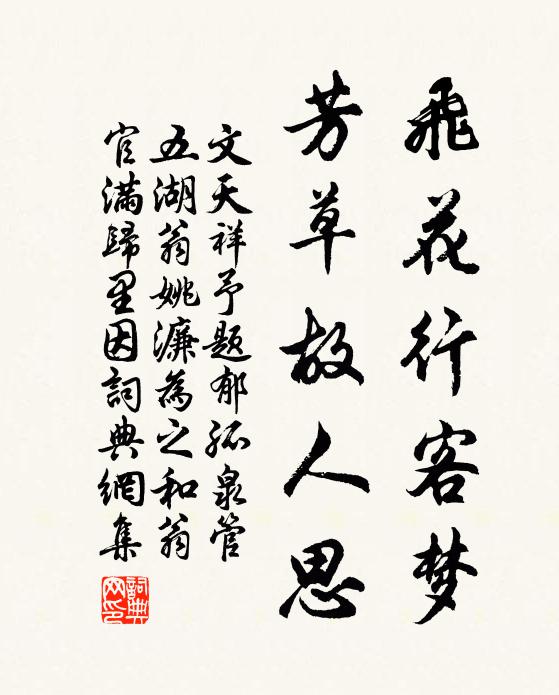 飛花行客梦
芳草故人思
文天祥予题郁孤泉管
五湖翁姚濂為之和翁
官滿歸里因詞典網集
詞典网印